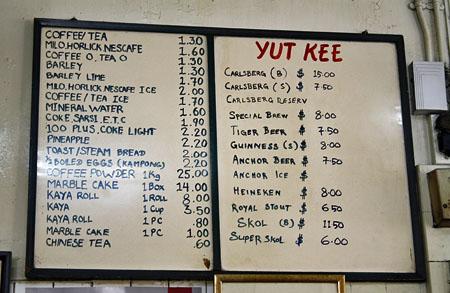 COFFEE/TEA 1.30
MILO.HORLICK NESCAFE 1.60
COFFEE O. TEA O 1.30
BARLEY 1.30
BARLEY LIME 1.70
MILO.HORLICK NESCAFE ICE 2.00
COFFEE/TEA ICE 1.70
MINERAL WATER 1.60
COKE.SARSI.E.T.C 1.90
100 PLUS.COKE LIGHT 2.20
PINEAPPLE 2.20
TOAST/STEAM BREAD 2.00
½ BOILED EGGS (KAMPONG) 2.20
COFFEE POWDER 1Kg 25.00
MARBLE CAKE 1 BOX 14.00
KAYA ROLL 1 ROLL 8.00
KAYA 1 CUP 3.50
KAYA ROLL 1 PC .80
MARBLE CAKE 1 PC 1.00
CHINESE TEA .60
YUT KEE
CARLSBERG (B) $ 15.00
CARLSBERG (S) $ 7.50
CARLSBERG RESERV
SPECIAL BREW $ 8.00
TIGER BEER $ 7.50
GUINNESS (S) $ 8.00
ANCHOR BEER $ 7.50
ANCHOR ICE $
HEINEKEN $ 8.00
ROYAL STOUT $ 6.50
SKOL (B) $ 11.50
SUPER SKOL $ 6.00